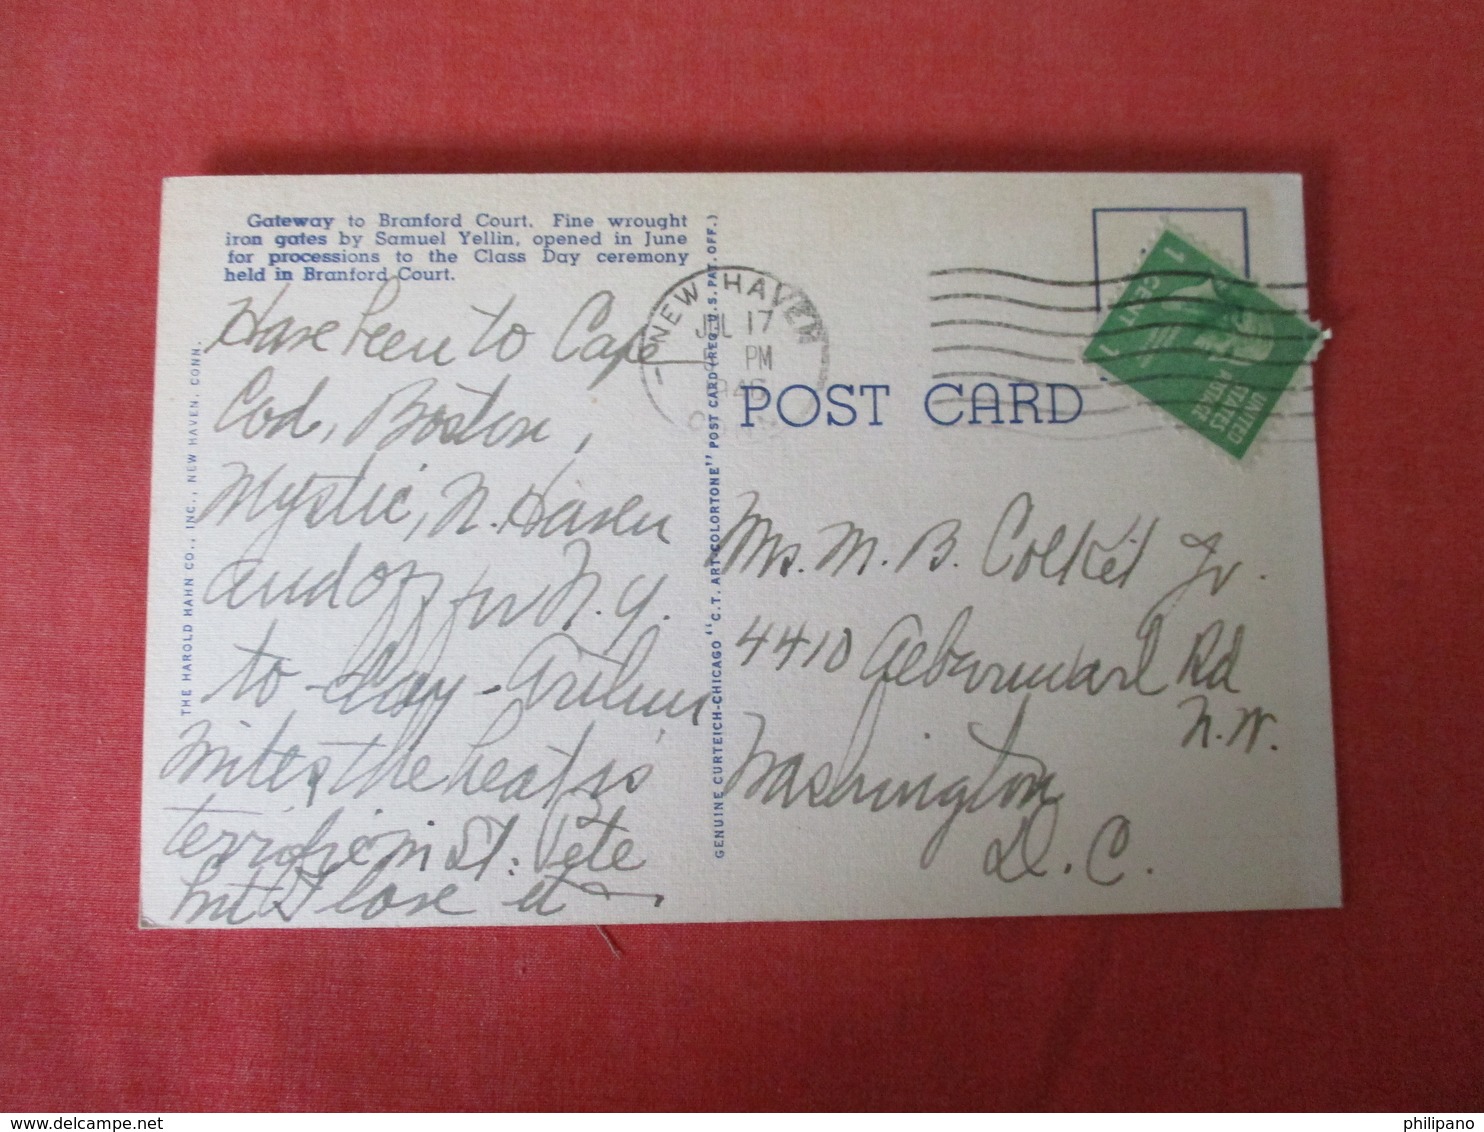 Gateway to Branford Court. Fine wrought
iron gates by Samuel Yellin, opened in June
for processions to the Class Day ceremony
held in Branford Court.
Have been to Cape
Cod, Boston,
Mystic, N. Haven
and off for N.Y.
to-day -
writes the heat is
terrific in St. Pete
but I love it
THE HAROLD HAHN CO., INC., NEW HAVEN, CONN.
GENUINE CURTEICH-CHICAGO "C.T. ART-COLORTONE" POST CARD (REG. U.S. PAT. OFF.)
NEW HAVEN
JUL 17
PM
1946
CONN
POST CARD
1 CENT 1
UNITED
STATES
POSTAGE
Mrs. M. B. Colket Jr.
4410 Albermarl Rd
N.W.
Washington
D.C.
www.delcampe.net
philipano